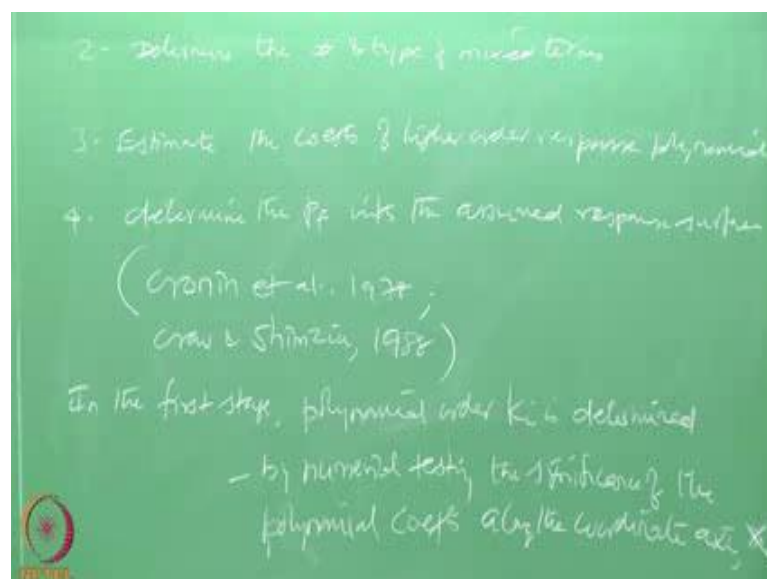 2- Determine the # & type of mixed terms
3. Estimate the coeffs of higher order response polynomial
4. determine the Pf with the assumed response surface
(Cronin et al., 1978;
Crow & Shimizu, 1988)
In the first stage, polynomial order Ki is determined
- by numerical testing the significance of the
polynomial coeffs along the coordinate axis, X